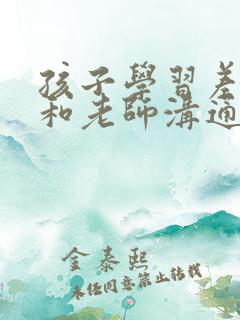 孩子學習差
和老師溝通
金泰熙
未经同意禁止转载